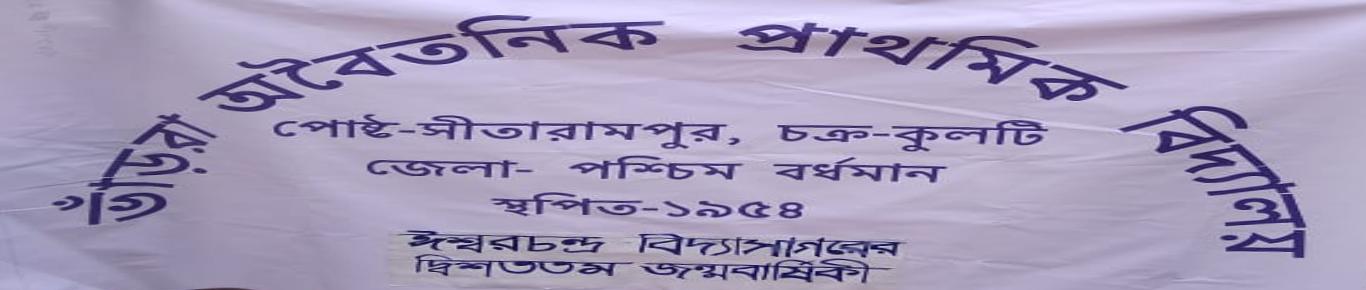 গাঁড়রা অবৈতনিক প্রাথমিক বিদ্যালয়
পোষ্ট-সীতারামপুর, চক্র-কুলটি
জেলা- পশ্চিম বর্ধমান
স্থপিত-১৯৫৪
ঈশ্বরচন্দ্র বিদ্যাসাগরের
দ্বিশততম জন্মবার্ষিকী